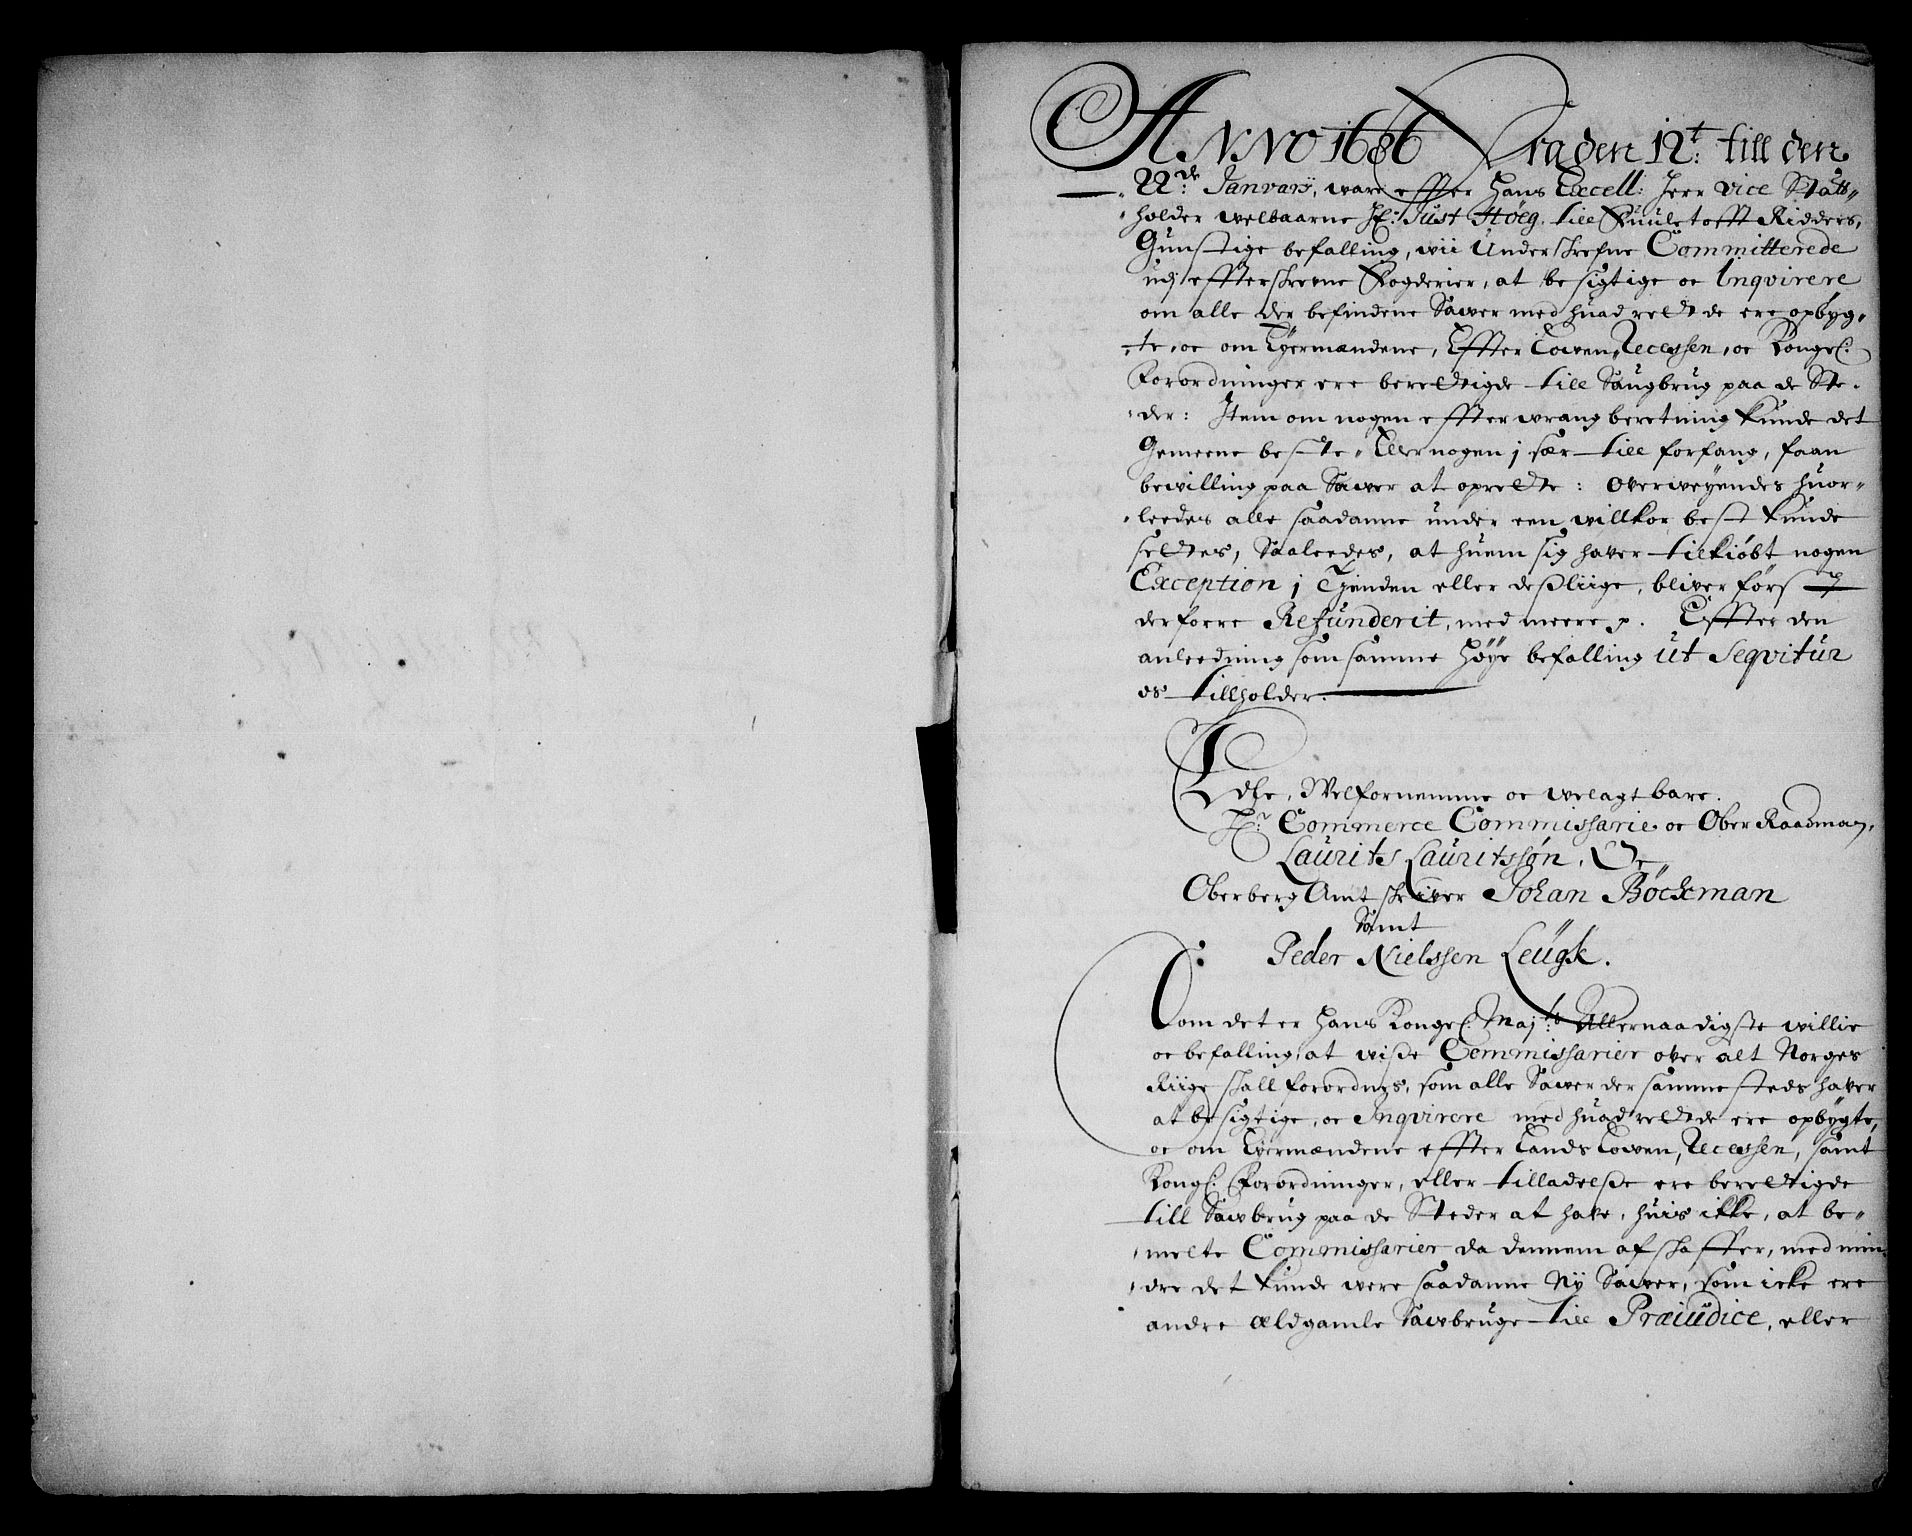 Anno 1686 Fra den 12t: till den
22de: Janvarij, ware effter Hans Excell: Herr vice Statt„
„holder welbaarne Hr: Just Høeg, till Fuuletofft Ridders,
Gunstige befalling, wii Underskrefne Committerede
udj effterskrevne Fogderier, at besigtige oc Inqvirere
om alle der befindene Sawer med huad rett de ere opbyg„
„te, oc om Eyermændene, Effter Lowen, Recessen, oc Kongel:
Forordninger ere berettigde till Saugbrug paa de Ste„
„der: Item om nogen effter wrang beretning kunde det
Gemeene beste, Eller nogen j sær till forfang, faan
bewilling paa Sawer at oprette: Overweyendes huor„
„leedes alle saadanne under een willkor best kunde
settes, Saaleedes, at huem sig haver tilkiøbt nogen
Exception j Tjenden eller desliige, bliver først
derforre Refunderit, med meere p. Effter den
anleedning som samme Høye befalling ut Seqvitur
os tillholder.
Edle, Welfornemme oc welagtbare.
Hr: Commerce Commissarie oc Ober Raadman,
Laurits Lauritssøn, Oc
Oberberg Amtskriver Johan Böckman
Samt
Peder Nielssen Leügk.
Som det er Hans Kongel: Majts: Allernaadigste willie
oc befalling, at wiße Commissarier over alt Norges
Riige skall forordnes, som alle Sawer der sammesteds haver
at besigtige, oc Inqvirere med huad rett de ere opbygte,
oc om Eyermændene effter Lands Lowen, Recessen, samt
Kongl: Forordninger, eller tilladelße ere berettigde
till Sawbrug paa de Steder at have, huis ikke, at be„
„melte Commissarier da dennem afskaffer, med min„
„dre det kunde were saadanne Ny Sawer, som icke ere
andre ældgamle Sawbruge till Præiudice, eller